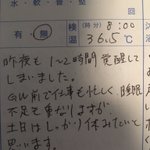 水・軟・普・堅
(時分) 8:00
有・無
検温
36.5℃
昨夜も1~2時間覚醒して
しまいました。
GW前で仕事も忙しく、睡眠
不足も重なりますが
土日はしっかり休みたいと
思います。